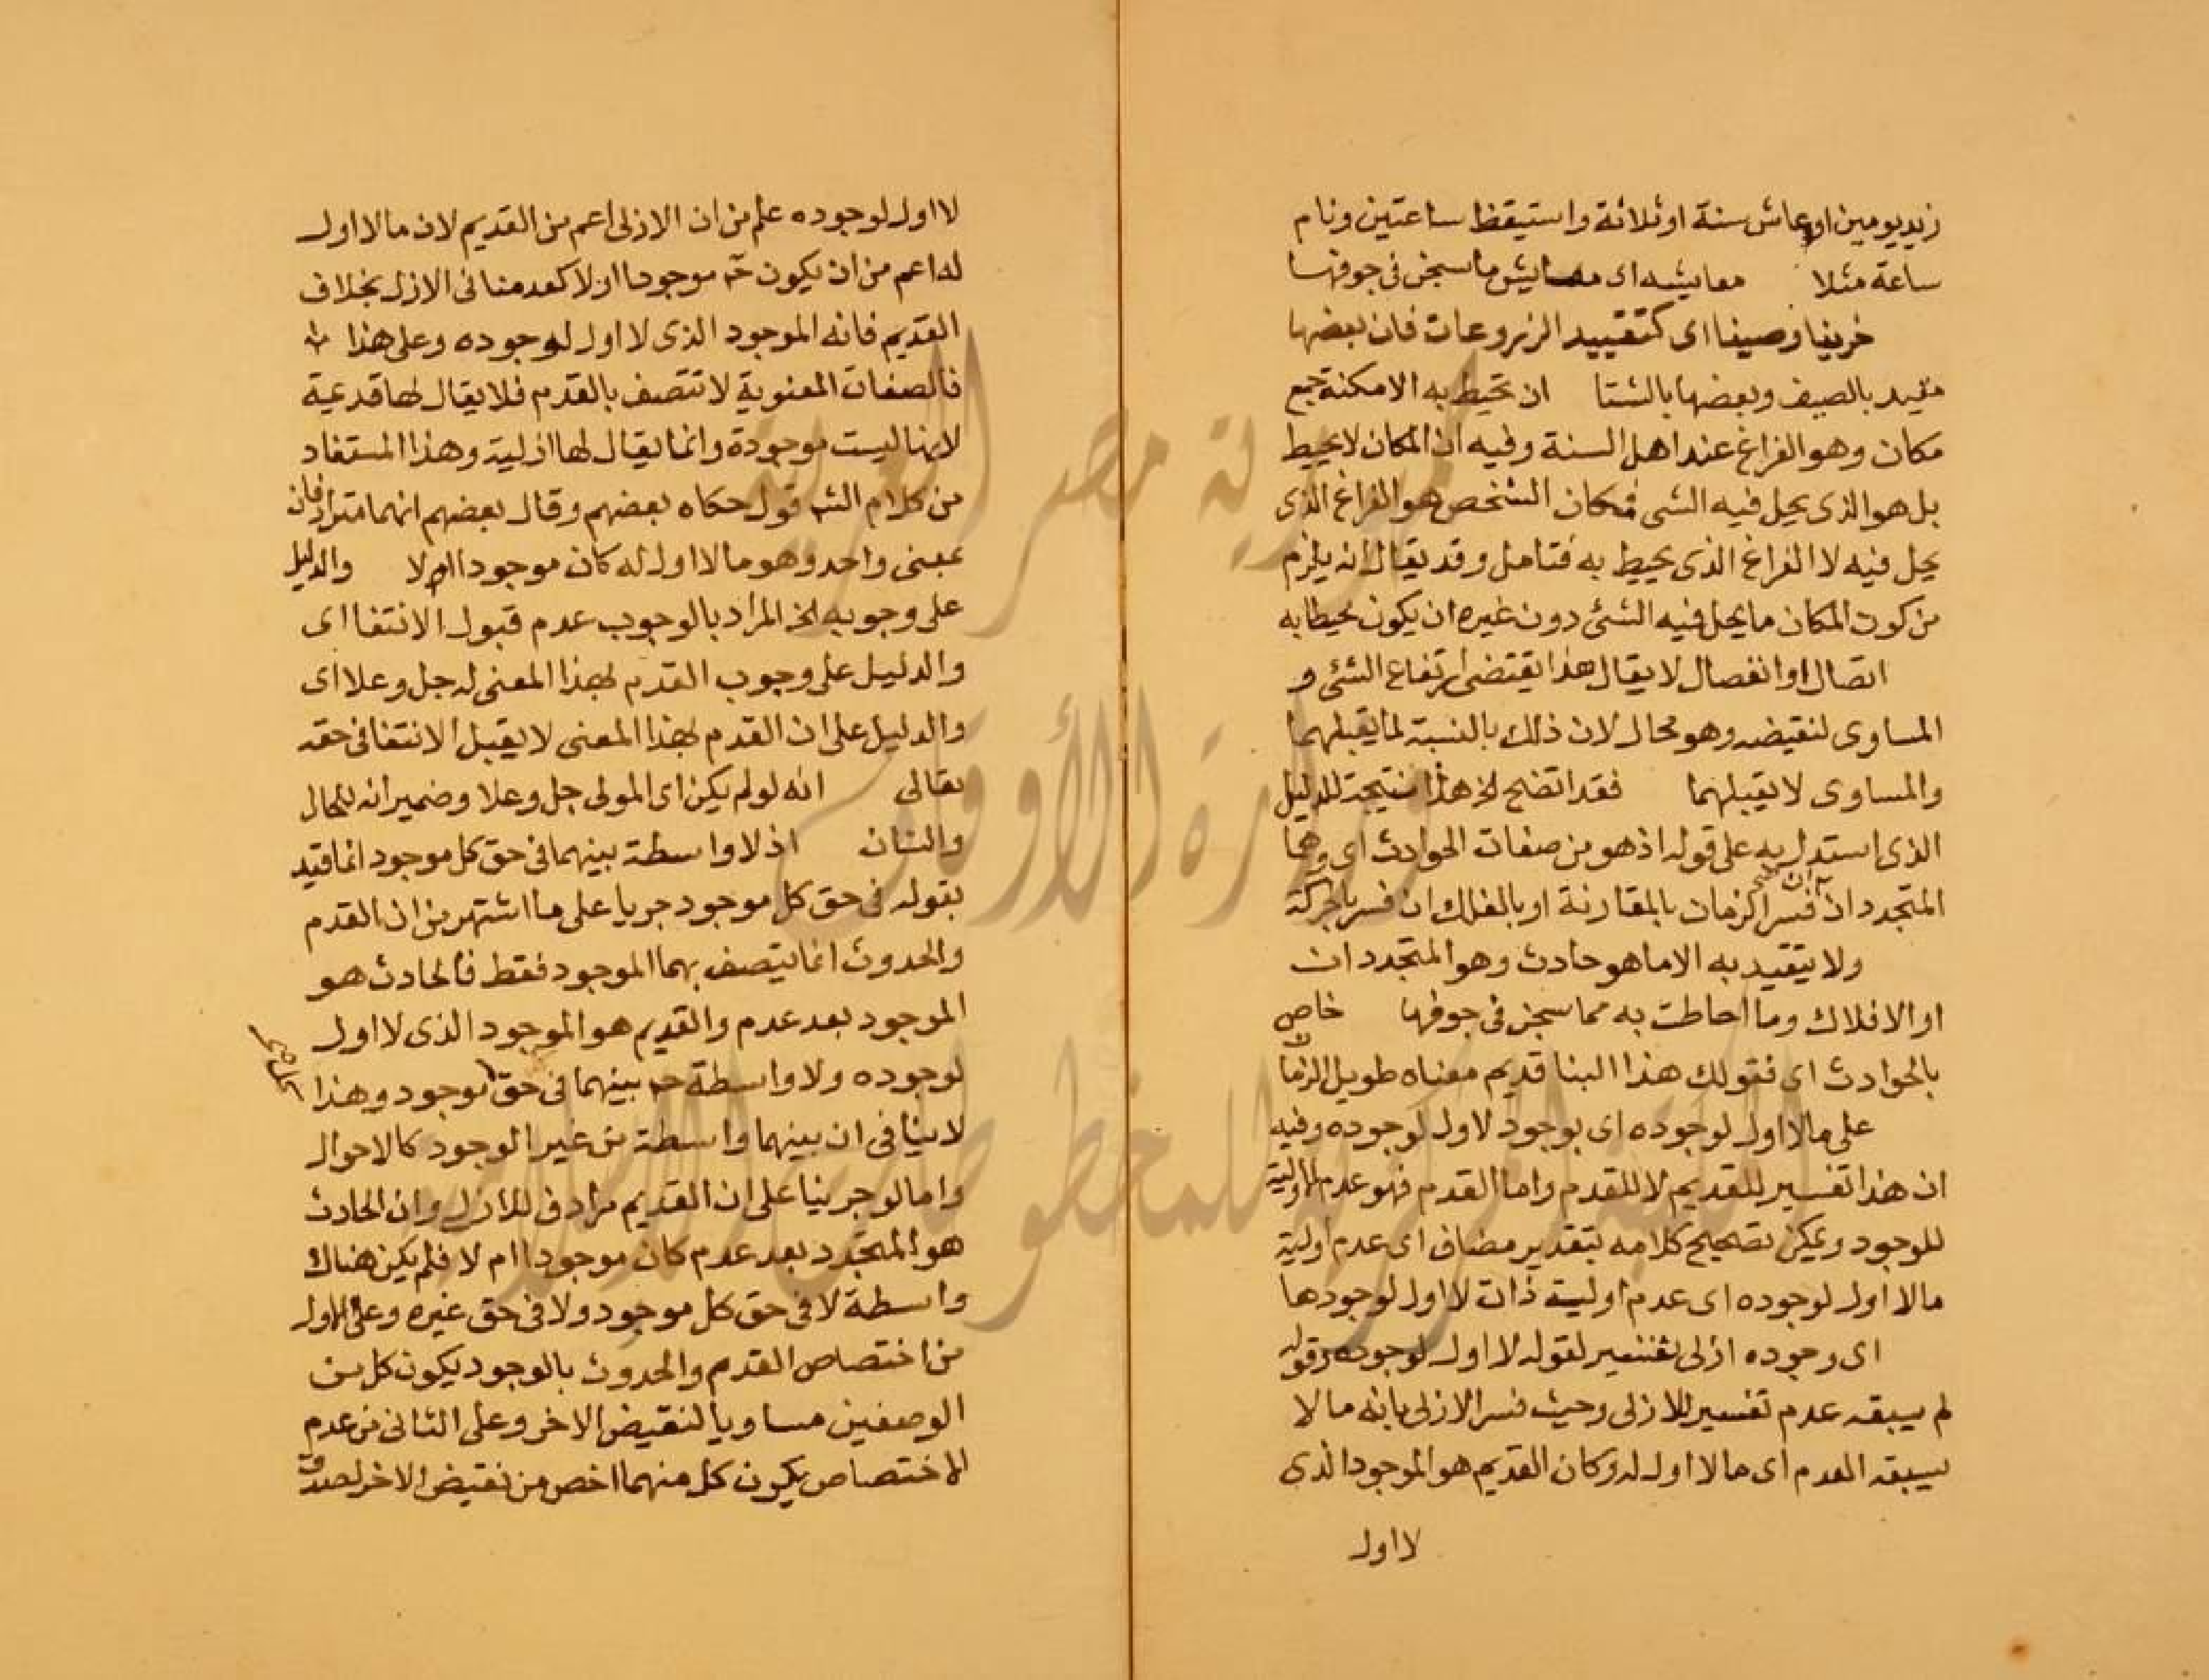 زيد يومين او عاش سنة او ثلاثة واستيقظ ساعتين ونام
ساعة مثلا معايشه اى ما سجن فى جوفها
خريفا وصيفا اى كتقييد الزروعات فان بعضها
مقيد بالصيف وبعضها بالشتا ان تحيط به الامكنة جمع
مكان وهو الفراغ عند اهل السنة وفيه ان المكان لا يحيط
بل هو الذى يحل فيه الشى فمكان الشخص هو الفراغ الذى
يحل فيه لا الفراغ الذى يحيط به فتامل وقد يقال انه يلزم
من كون المكان ما يحل فيه الشئ دون غيره ان يكون محيطا به
اتصال او انفصال لا يقال هذا يقتضى ارتفاع الشئ و
المساوى لنقيضه وهو محال لان ذلك بالنسبة لما يقبلهما
والمساوى لا يقبلهما فقد اتضح لخ هذا نتيجة للدليل
الذى استدل به على قوله اذ هو من صفات الحوادث اى وهما
المتجددان ان فسر الزمان بالمقارنة او بالفلك ان فسر بالحركة
ولا يتقيد به الا ما هو حادث وهو المتجددات
او الافلاك وما احاطت به مما سجن فى جوفها خاص
بالحوادث اى فقولك هذا البنا قديم معناه طويل الزمان
على ما لا اول لوجوده اى بوجود لا اول لوجوده وفيه
ان هذا تفسير للقديم لا للقدم واما القدم فهو عدم الاولية
للوجود ويمكن تصحيح كلامه بتقدير مضاف اى عدم اولية
ما لا اول لوجوده اى عدم اولية ذات لا اول لوجودها
اى وجوده ازلى تفسير لقوله لا اول لوجوده وقوله
لم يسبقه عدم تفسير للازلى وحيث فسر الازلى بانه ما لا
يسبقه العدم اى ما لا اول له وكان القديم هو الموجود الذى
لا اول
لا اول لوجوده علم من ان الازلى اعم من القديم لان ما لا اول
له اعم من ان يكون موجودا او لا كعدمنا فى الازل بخلاف
القديم فانه الموجود الذى لا اول لوجوده وعلى هذا
فالصفات المعنوية لا تتصف بالقدم فلا يقال لها قديمة
لانها ليست موجودة وانما يقال لها ازلية وهذا المستفاد
من كلام الش قول حكاه بعضهم وقال بعضهم انهما مترادفان
بمعنى واحد وهو ما لا اول له كان موجودا ام لا والدليل
على وجوبه لخ المراد بالوجوب عدم قبول الانتفا اى
والدليل على وجوب القدم بهذا المعنى له جل وعلا اى
والدليل على ان القدم بهذا المعنى لا يقبل الانتفا فى حقه
تعالى انه لو لم يكن اى المولى جل وعلا وضمير انه للحال
والشان اذ لا واسطة بينهما فى حق كل موجود انما قيد
بقوله فى حق كل موجود جريا على ما اشتهر من ان القدم
والحدوث انما يتصف بهما الموجود فقط فالحادث هو
الموجود بعد عدم والقديم هو الموجود الذى لا اول
لوجوده ولا واسطة ح بينهما فى حق موجود وهذا
لا ينافى ان بينهما واسطة من غير الوجود كالاحوال
واما لو جرينا على ان القديم مرادف للازل وان الحادث
هو المتجدد بعد عدم كان موجودا ام لا فلم يكن هناك
واسطة لا فى حق كل موجود ولا فى حق غيره وعلى الاول
من اختصاص القدم والحدوث بالوجود يكون كل من
الوصفين مساويا لنقيض الاخر وعلى الثانى من عدم
الاختصاص يكون كل منهما اخص من نقيض الاخر لصدق
جمهورية مصر العربية
وزارة الأوقاف
المكتبة المركزية للمخطوطات الإسلامية